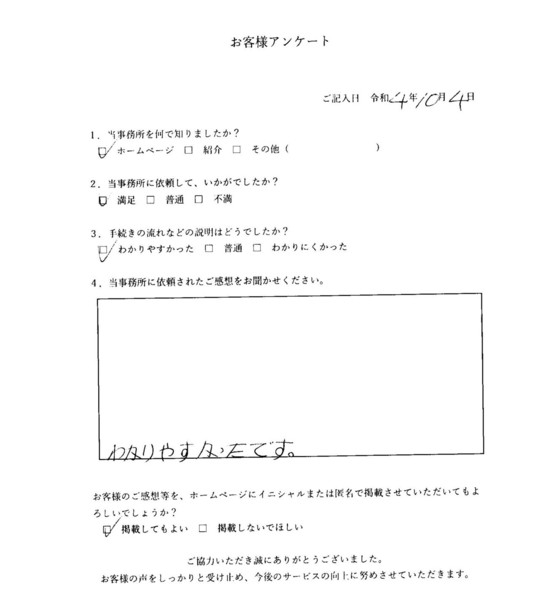 お客様アンケート
ご記入日 令和4年10月4日
1．当事務所を何で知りましたか？
☑ ホームページ □ 紹介 □ その他（ ）
2．当事務所に依頼して、いかがでしたか？
☑ 満足 □ 普通 □ 不満
3．手続きの流れなどの説明はどうでしたか？
☑ わかりやすかった □ 普通 □ わかりにくかった
4．当事務所に依頼されたご感想をお聞かせください。
わかりやすかったです。
お客様のご感想等を、ホームページにイニシャルまたは匿名で掲載させていただいてもよ
ろしいでしょうか？
☑ 掲載してもよい □ 掲載しないでほしい
ご協力いただき誠にありがとうございました。
お客様の声をしっかりと受け止め、今後のサービスの向上に努めさせていただきます。